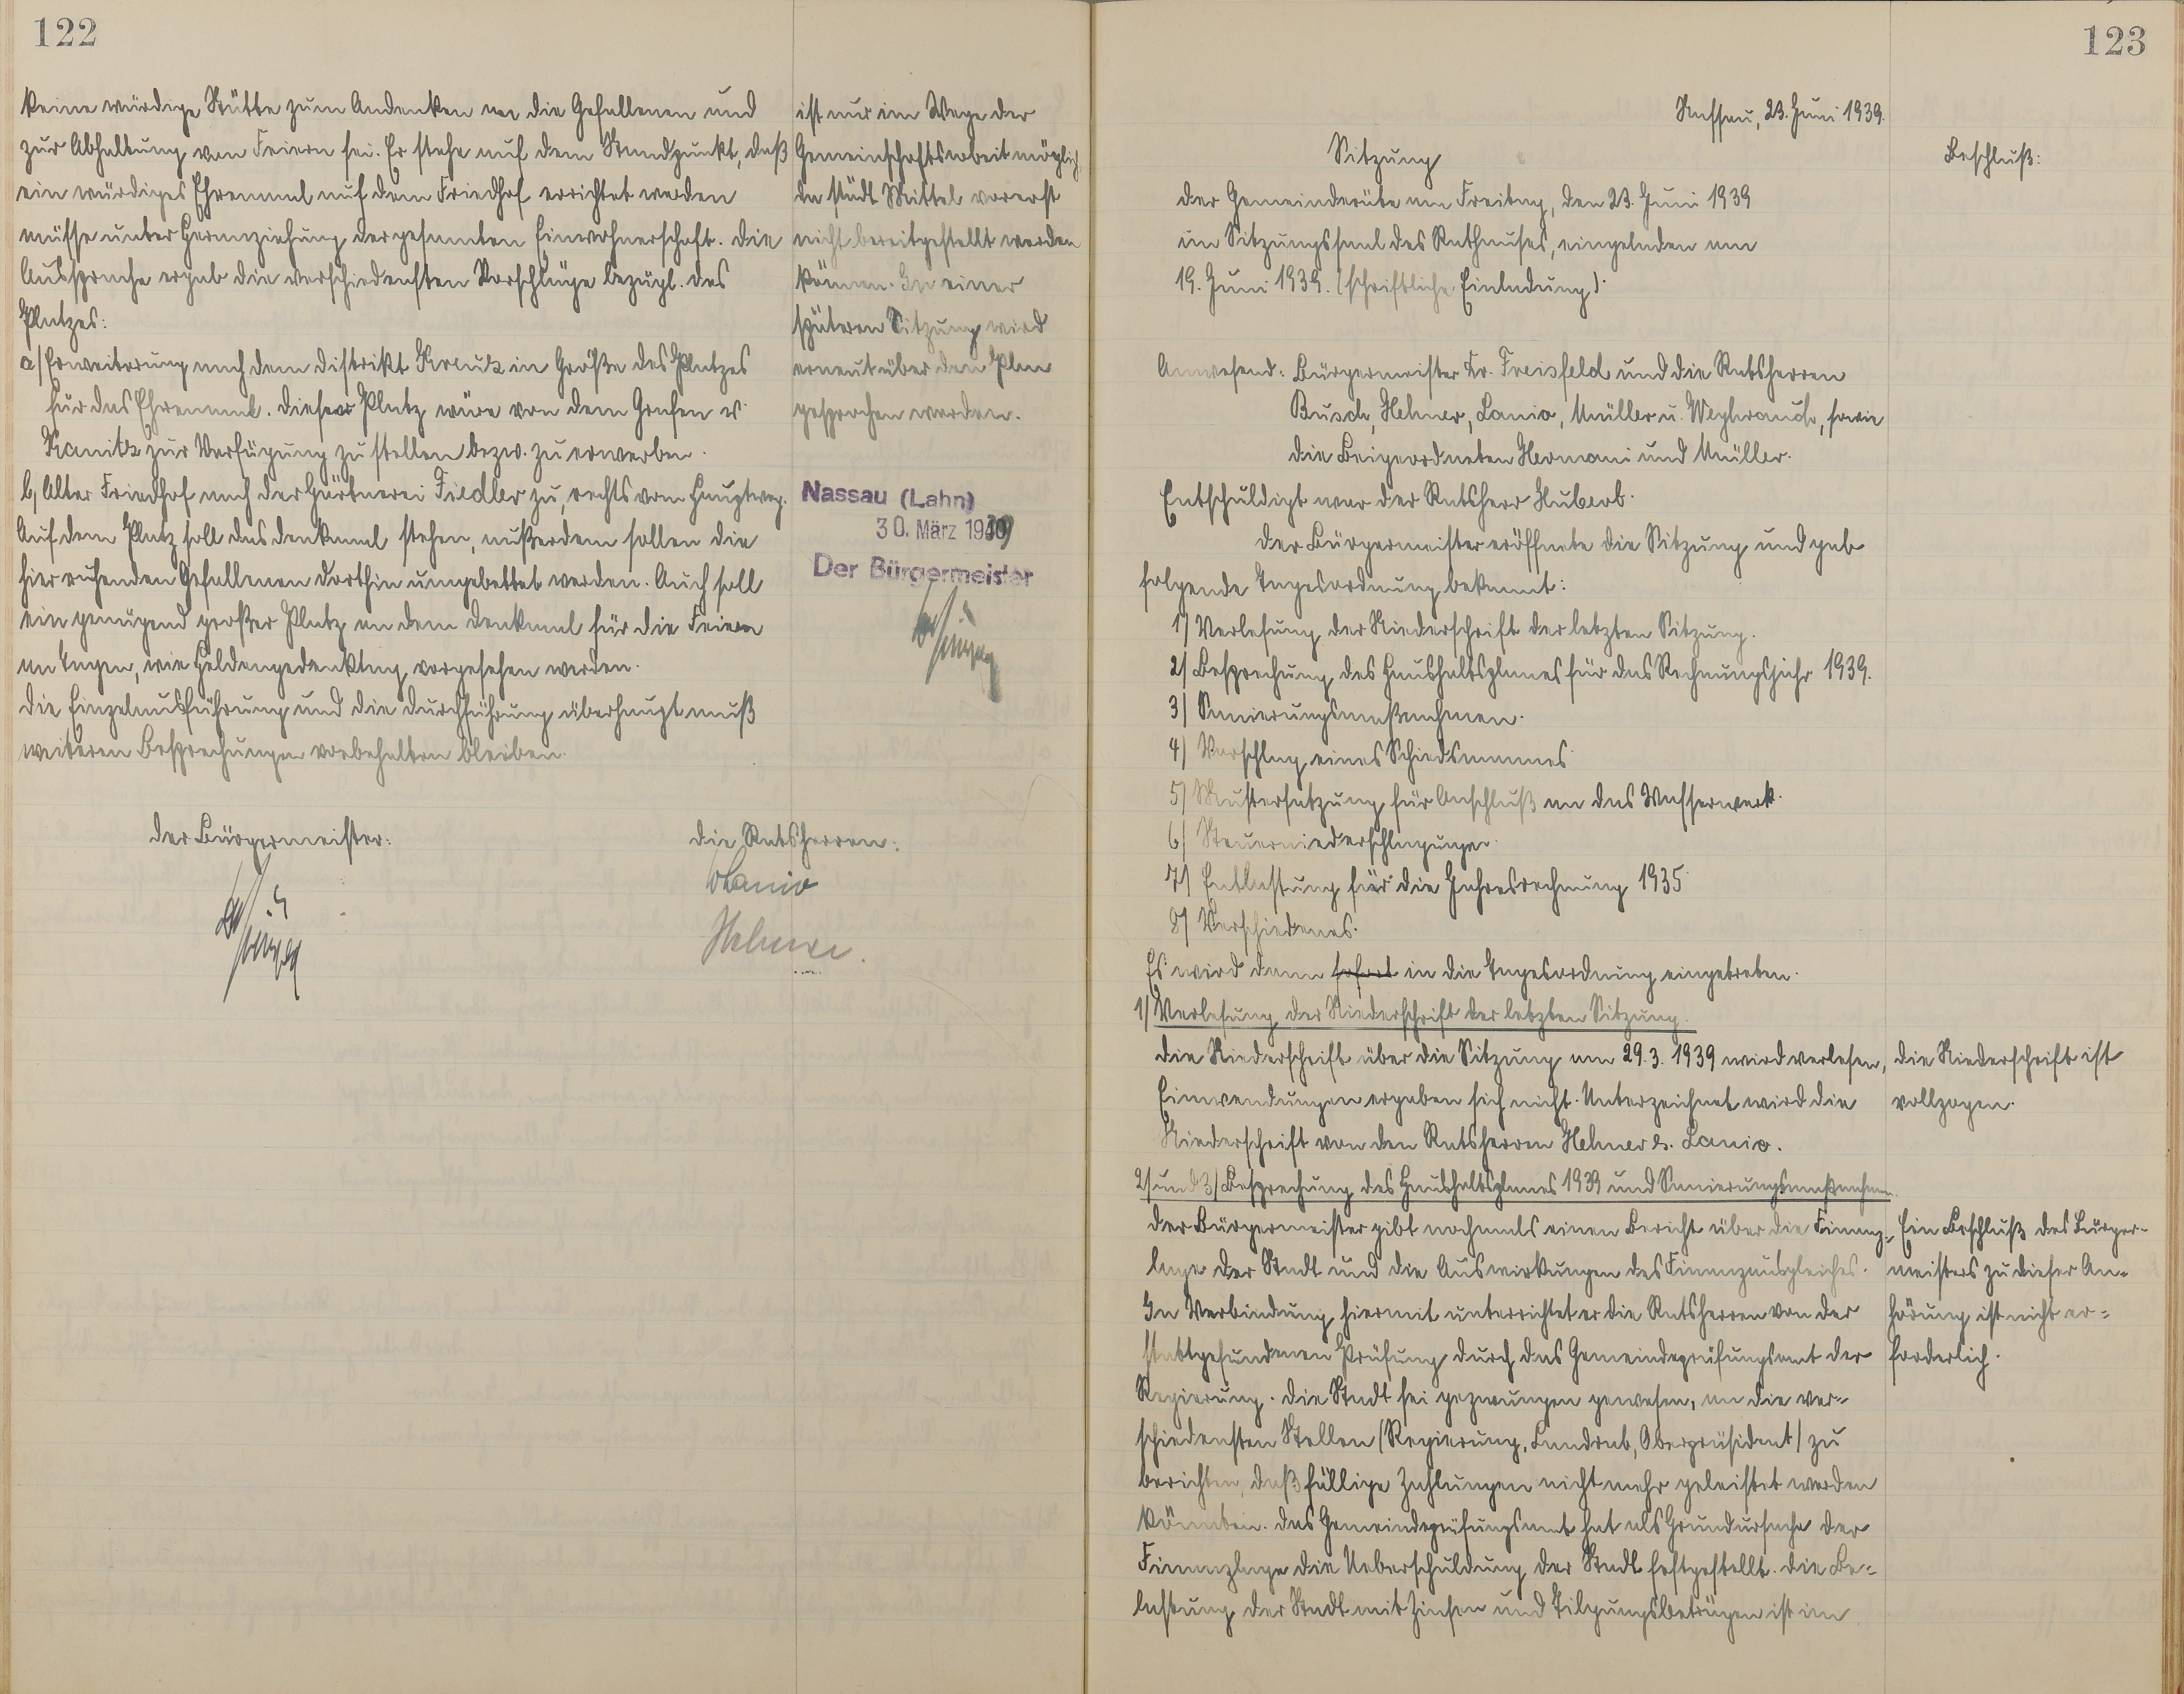 122
keine würdige Stätte zum Andenken an die Gefallenen und
zur Abhaltung von Feiern sei. Er stehe auf dem Standpunkt, daß
ein würdiges Ehrenmal auf dem Friedhof errichtet werden
müsse unter Heranziehung der gesamten Einwohnerschaft. Die
Aussprache ergab die verschiedensten Vorschläge bezügl. des
Platzes:
a) Erweiterung nach dem Distrikt Kreuz in Größe des Platzes
für das Ehrenmal. Dieser Platz wäre von dem Grafen v.
Kanitz zur Verfügung zu stellen bezw. zu erwerben.
b) Alter Friedhof nach der Gärtnerei Fiedler zu, rechts vom Hauptweg.
Auf dem Platz soll das Denkmal stehen, außerdem sollen die
hier ruhenden Gefallenen dorthin umgebettet werden. Auch soll
ein genügend großer Platz an dem Denkmal für die Feiern
an Tagen, wie Heldengedenktag, vorgesehen werden.
Die Einzelausführung und die Durchführung überhaupt muß
weiteren Besprechungen vorbehalten bleiben.
Der Bürgermeister:
Die Ratsherren:
Lanio
Helmer.
ist nur im Wege der
Gemeinschaftsarbeit möglich,
da städt. Mittel vorerst
nicht bereitgestellt werden
können. In einer
späteren Sitzung wird
erneut über den Plan
gesprochen werden.
Nassau (Lahn)
30. März 1939
Der Bürgermeister
123
Nassau, 23. Juni 1939.
Sitzung
der Gemeinderäte am Freitag, den 23. Juni 1939
im Sitzungssaal des Rathauses, eingeladen am
19. Juni 1939. (schriftliche Einladung).
Beschluß:
Anwesend: Bürgermeister Dr. Freisfeld und die Ratsherren
Busch, Helmer, Lanio, Müller u. Weyhrauch, sowie
die Beigeordneten Hermani und Müller.
Entschuldigt war der Ratsherr Hubert.
Der Bürgermeister eröffnete die Sitzung und gab
folgende Tagesordnung bekannt:
1) Verlesung der Niederschrift der letzten Sitzung.
2) Besprechung des Haushaltsplanes für das Rechnungsjahr 1939.
3) Sanierungsmaßnahmen.
4) Vorschlag eines Schiedsmannes
5) Mustersatzung für Anschluß an das Wasserwerk.
6) Steuerniederschlagungen.
7) Entlastung für die Jahresrechnung 1935
8) Verschiedenes.
Es wird dann sofort in die Tagesordnung eingetreten.
1) Verlesung der Niederschrift der letzten Sitzung.
Die Niederschrift über die Sitzung am 29.3.1939 wird verlesen,
Einwendungen ergaben sich nicht. Unterzeichnet wird die
Niederschrift von den Ratsherren Helmer &. Lanio.
Die Niederschrift ist
vollzogen.
2) und 3) Besprechung des Haushaltsplanes 1939 und Sanierungsmaßnahmen.
Der Bürgermeister gibt nochmals einen Bericht über die Finanz-
lage der Stadt und die Auswirkungen des Finanzausgleiches.
In Verbindung hiermit unterrichtet er die Ratsherren von der
stattgefundenen Prüfung durch das Gemeindeprüfungsamt der
Regierung. Die Stadt sei gezwungen gewesen, an die ver-
schiedensten Stellen (Regierung, Landrat, Oberpräsident) zu
berichten, daß fällige Zahlungen nicht mehr geleistet werden
könnten. Das Gemeindeprüfungsamt hat als Grundursache der
Finanzlage die Ueberschuldung der Stadt festgestellt. Die Be-
lastung der Stadt mit Zinsen und Tilgungsbeträgen ist im
Ein Beschluß des Bürger-
meisters zu dieser An-
hörung ist nicht er-
forderlich.